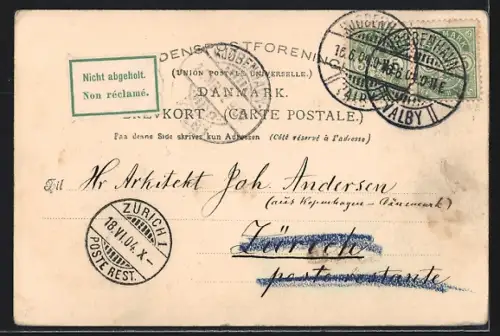 Nicht abgeholt.
Non réclamé.
DENSPOSTFORENING
(UNION POSTALE UNIVERSELLE.)
DANMARK.
BREVKORT (CARTE POSTALE.)
Paa denne Side skrives kun Adressen (Côté réservé à l'adresse)
KJØBENHAVN
16.6.04
VALBY
Til Hr Arkitekt Joh. Andersen
(aus Kopenhagen - Dänemark)
Zürich
poste restante
ZÜRICH 1
18.VI.04. X-
POSTE REST.